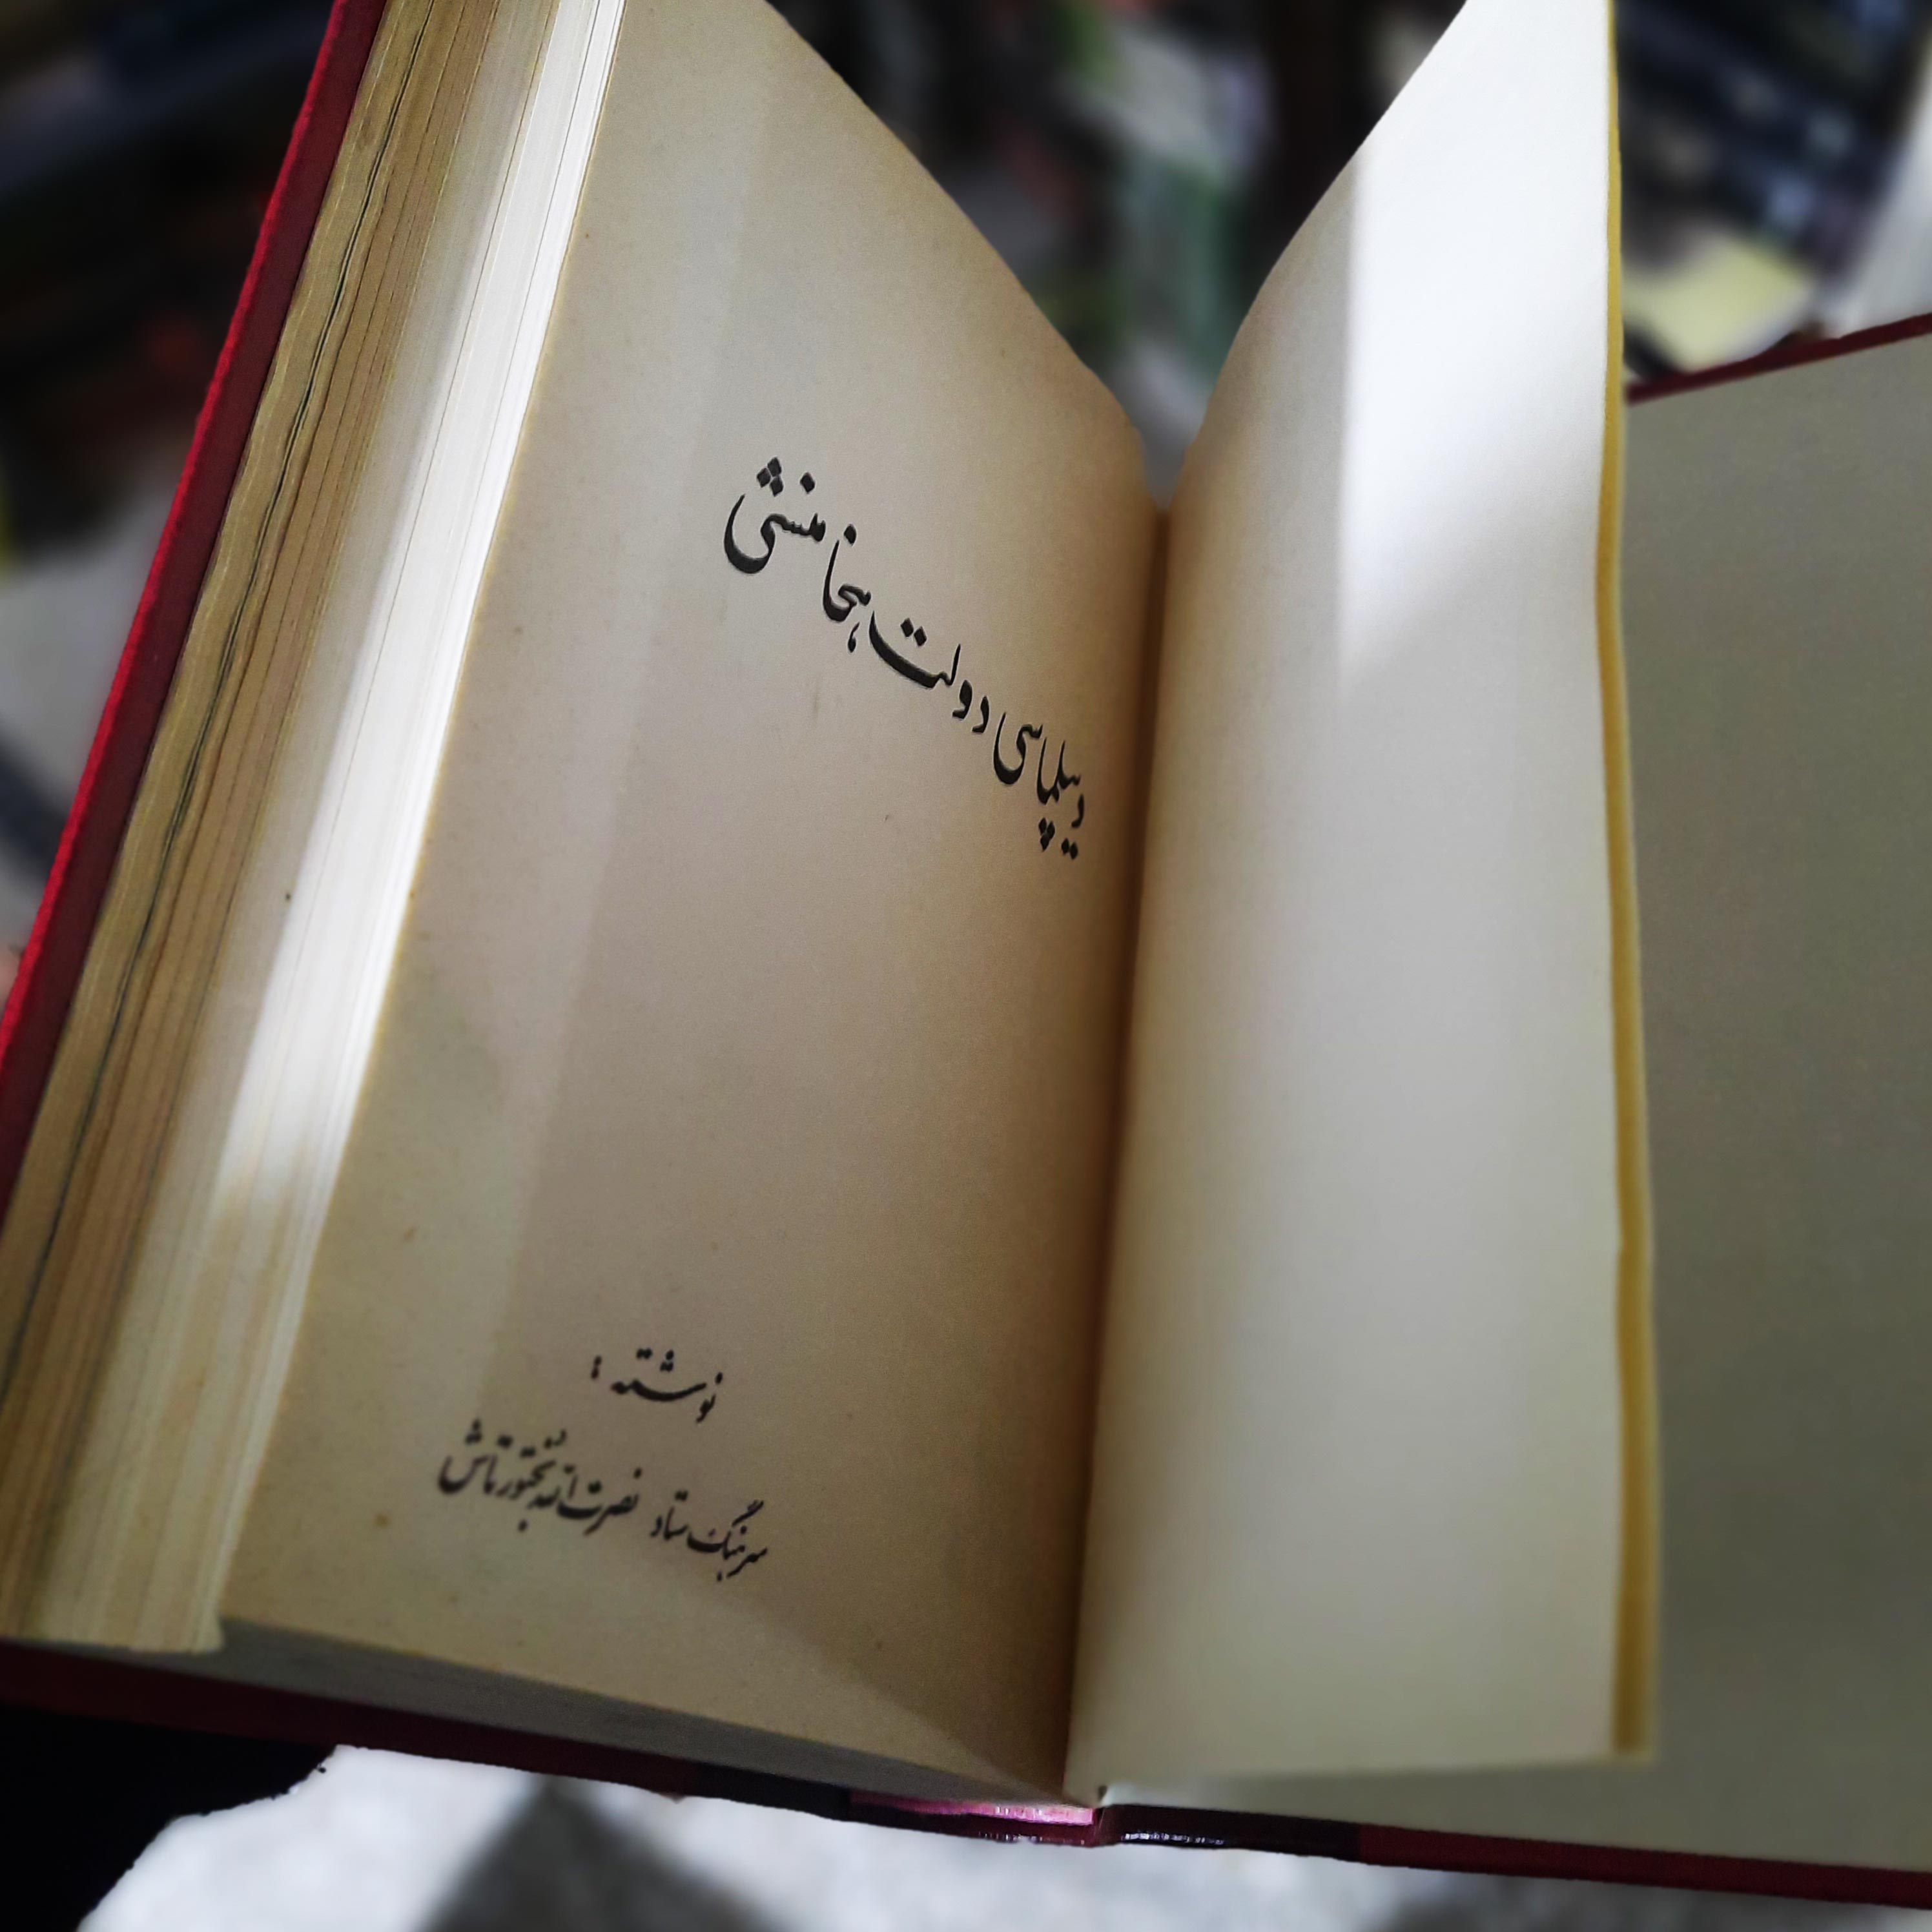 دیپلماسی دولت هخامنشی
نوشته :
سرهنگ ستاد نصرت الله بختورتاش